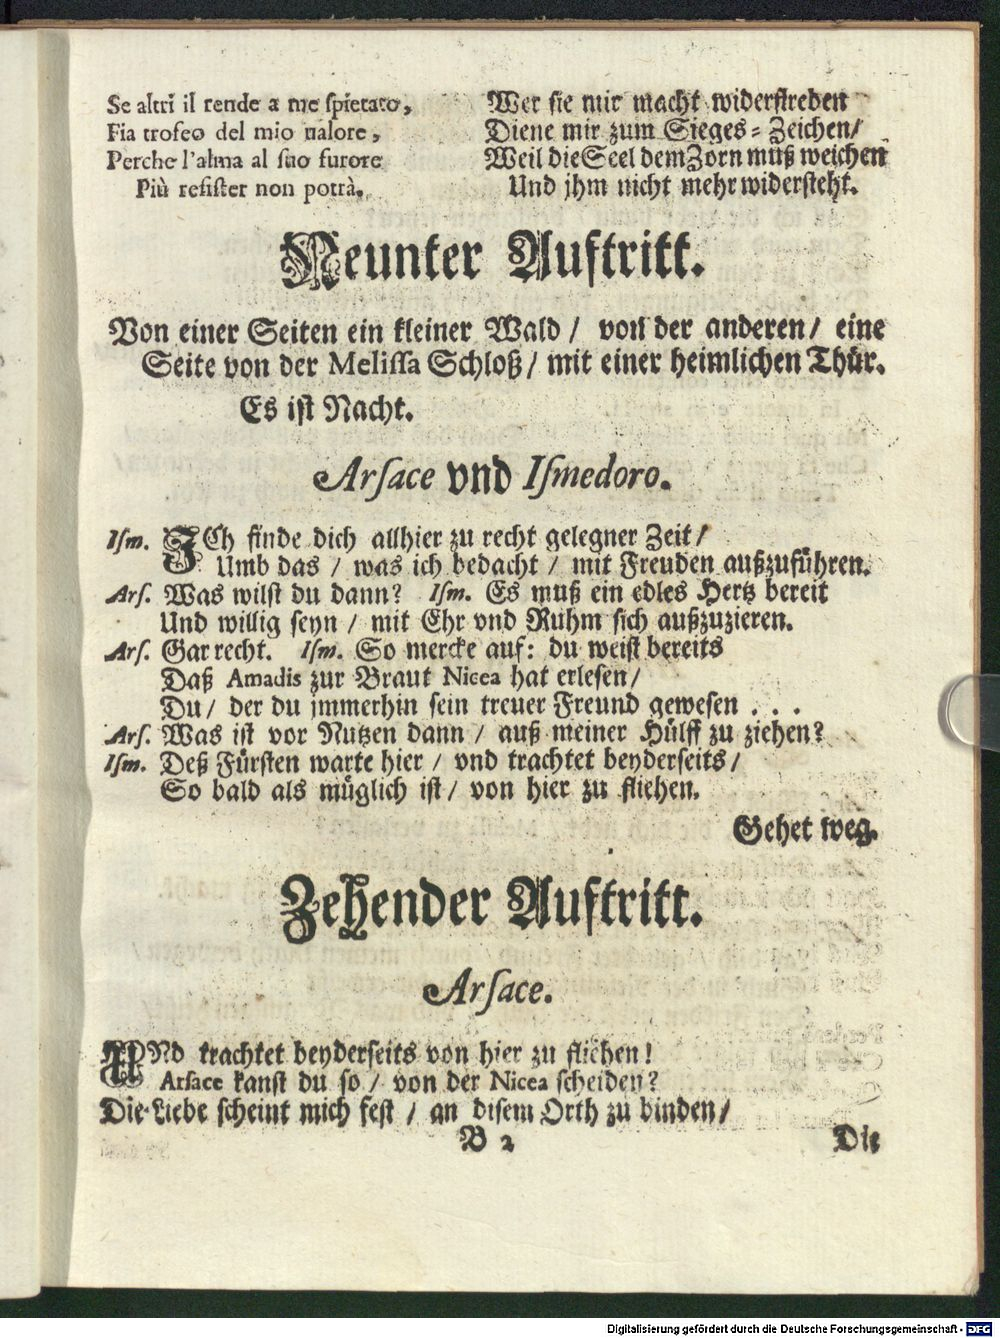 Se altri il rende a me ſpietato,
Fia trofeo del mio ualore,
Perche l'alma al ſuo furore
Più reſiſter non potrà.
Wer ſie mir macht widerſtreben
Diene mir zum Sieges-Zeichen/
Weil die Seel dem Zorn muß weichen
Und jhm nicht mehr widerſteht.
Neunter Auftritt.
Von einer Seiten ein kleiner Wald / von der anderen / eine
Seite von der Meliſſa Schloß / mit einer heimlichen Thür.
Es iſt Nacht.
Arſace vnd Iſmedoro.
Iſm. ICh finde dich allhier zu recht gelegner Zeit /
Umb das / was ich bedacht / mit Freuden außzuführen.
Arſ. Was wilſt du dann? Iſm. Es muß ein edles Hertz bereit
Und willig ſeyn / mit Ehr vnd Ruhm ſich außzuzieren.
Arſ. Gar recht. Iſm. So mercke auf: du weiſt bereits
Daß Amadis zur Braut Nicea hat erleſen /
Du / der du jmmerhin ſein treuer Freund geweſen . . .
Arſ. Was iſt vor Nutzen dann / auß meiner Hülff zu ziehen?
Iſm. Deß Fürſten warte hier / vnd trachtet beyderſeits /
So bald als müglich iſt / von hier zu fliehen.
Gehet weg.
Zehender Auftritt.
Arſace.
UNd trachtet beyderſeits von hier zu fliehen!
Arſace kanſt du ſo / von der Nicea ſcheiden?
Die Liebe ſcheint mich feſt / an diſem Orth zu binden /
B 2
Die
Digitalisierung gefördert durch die Deutsche Forschungsgemeinschaft - DFG